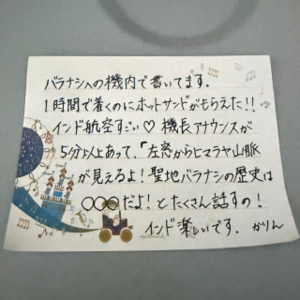 バラナシへの機内で書いてます。
1時間で着くのにホットサンドがもらえた!!
インド航空すごい♡ 機長アナウンスが
5分以上あって、「左窓からヒマラヤ山脈
が見えるよ!聖地バラナシの歴史は
○○○だよ!とたくさん話すの!
インド楽しいです。かりん